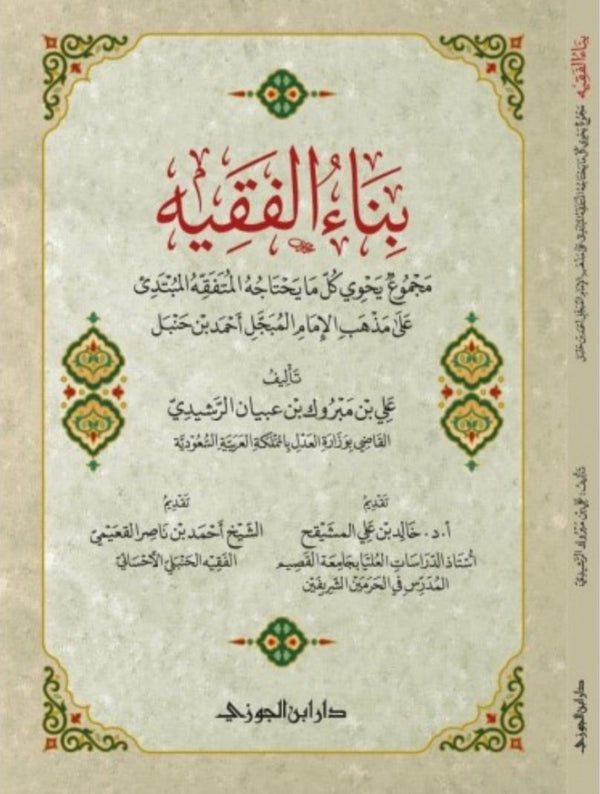 بِنَاءُ الفَقِيه
مَجْمُوعٌ يَحْوِي كُلَّ مَا يَحْتَاجُهُ المُتَفَقِّهُ المُبْتَدِئ
عَلَى مَذْهَبِ الإِمَامِ المُبَجَّلِ أَحْمَدَ بْنِ حَنْبَل
تَأْلِيفُ
عَلِي بْن مَبْرُوك بْن عبيان الرَّشِيدِيّ
القَاضِي بِوَزَارَةِ العَدْلِ بِالمَمْلَكَةِ العَرَبِيَّةِ السُّعُودِيَّة
تَقْدِيمُ
أ.د. خَالِد بْن عَلِي المشَيْقح
أُسْتَاذ الدِّرَاسَاتِ العُلْيَا بِجَامِعَة القَصِيم
المُدَرِّس فِي الحَرَمَيْنِ الشَّرِيفَيْن
تَقْدِيمُ
الشَّيْخ أَحْمَد بْن نَاصِر القعَيْمِيّ
الفَقِيه الحَنْبَلِيّ الأَحْسَائِيّ
دار ابن الجوزي
بِنَاءُ الفَقِيه مَجْمُوعٌ يَحْوِي كُلَّ مَا يَحْتَاجُهُ المُتَفَقِّهُ المُبْتَدِئ عَلَى مَذْهَبِ الإِمَامِ المُبَجَّلِ أَحْمَدَ بْنِ حَنْبَل
تَأْلِيفُ: عَلِي بْن مَبْرُوك الرَّشِيدِيّ
دار ابن الجوزي